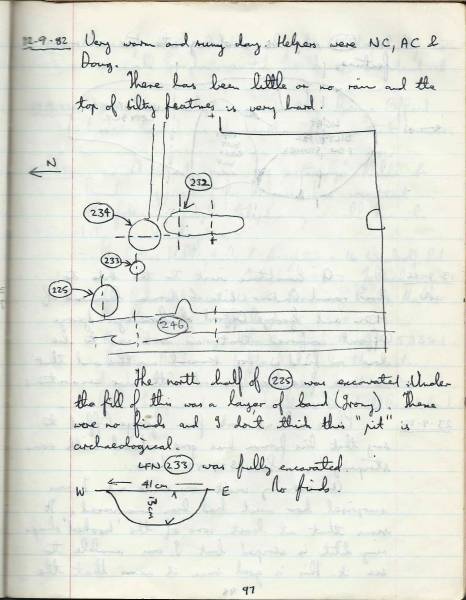 12-9-82 Very warm and sunny day. Helpers were NC, AC &
Doug.
There has been little or no rain and the
top of silty features is very hard.
N
232
234
233
225
246
The north half of 225 was excavated. Under
the fill of this was a layer of sand (Irony). There
were no finds and I don't think this "pit" is
archaeological.
LFN 233 was fully excavated.
W 41 cm E No finds.
97